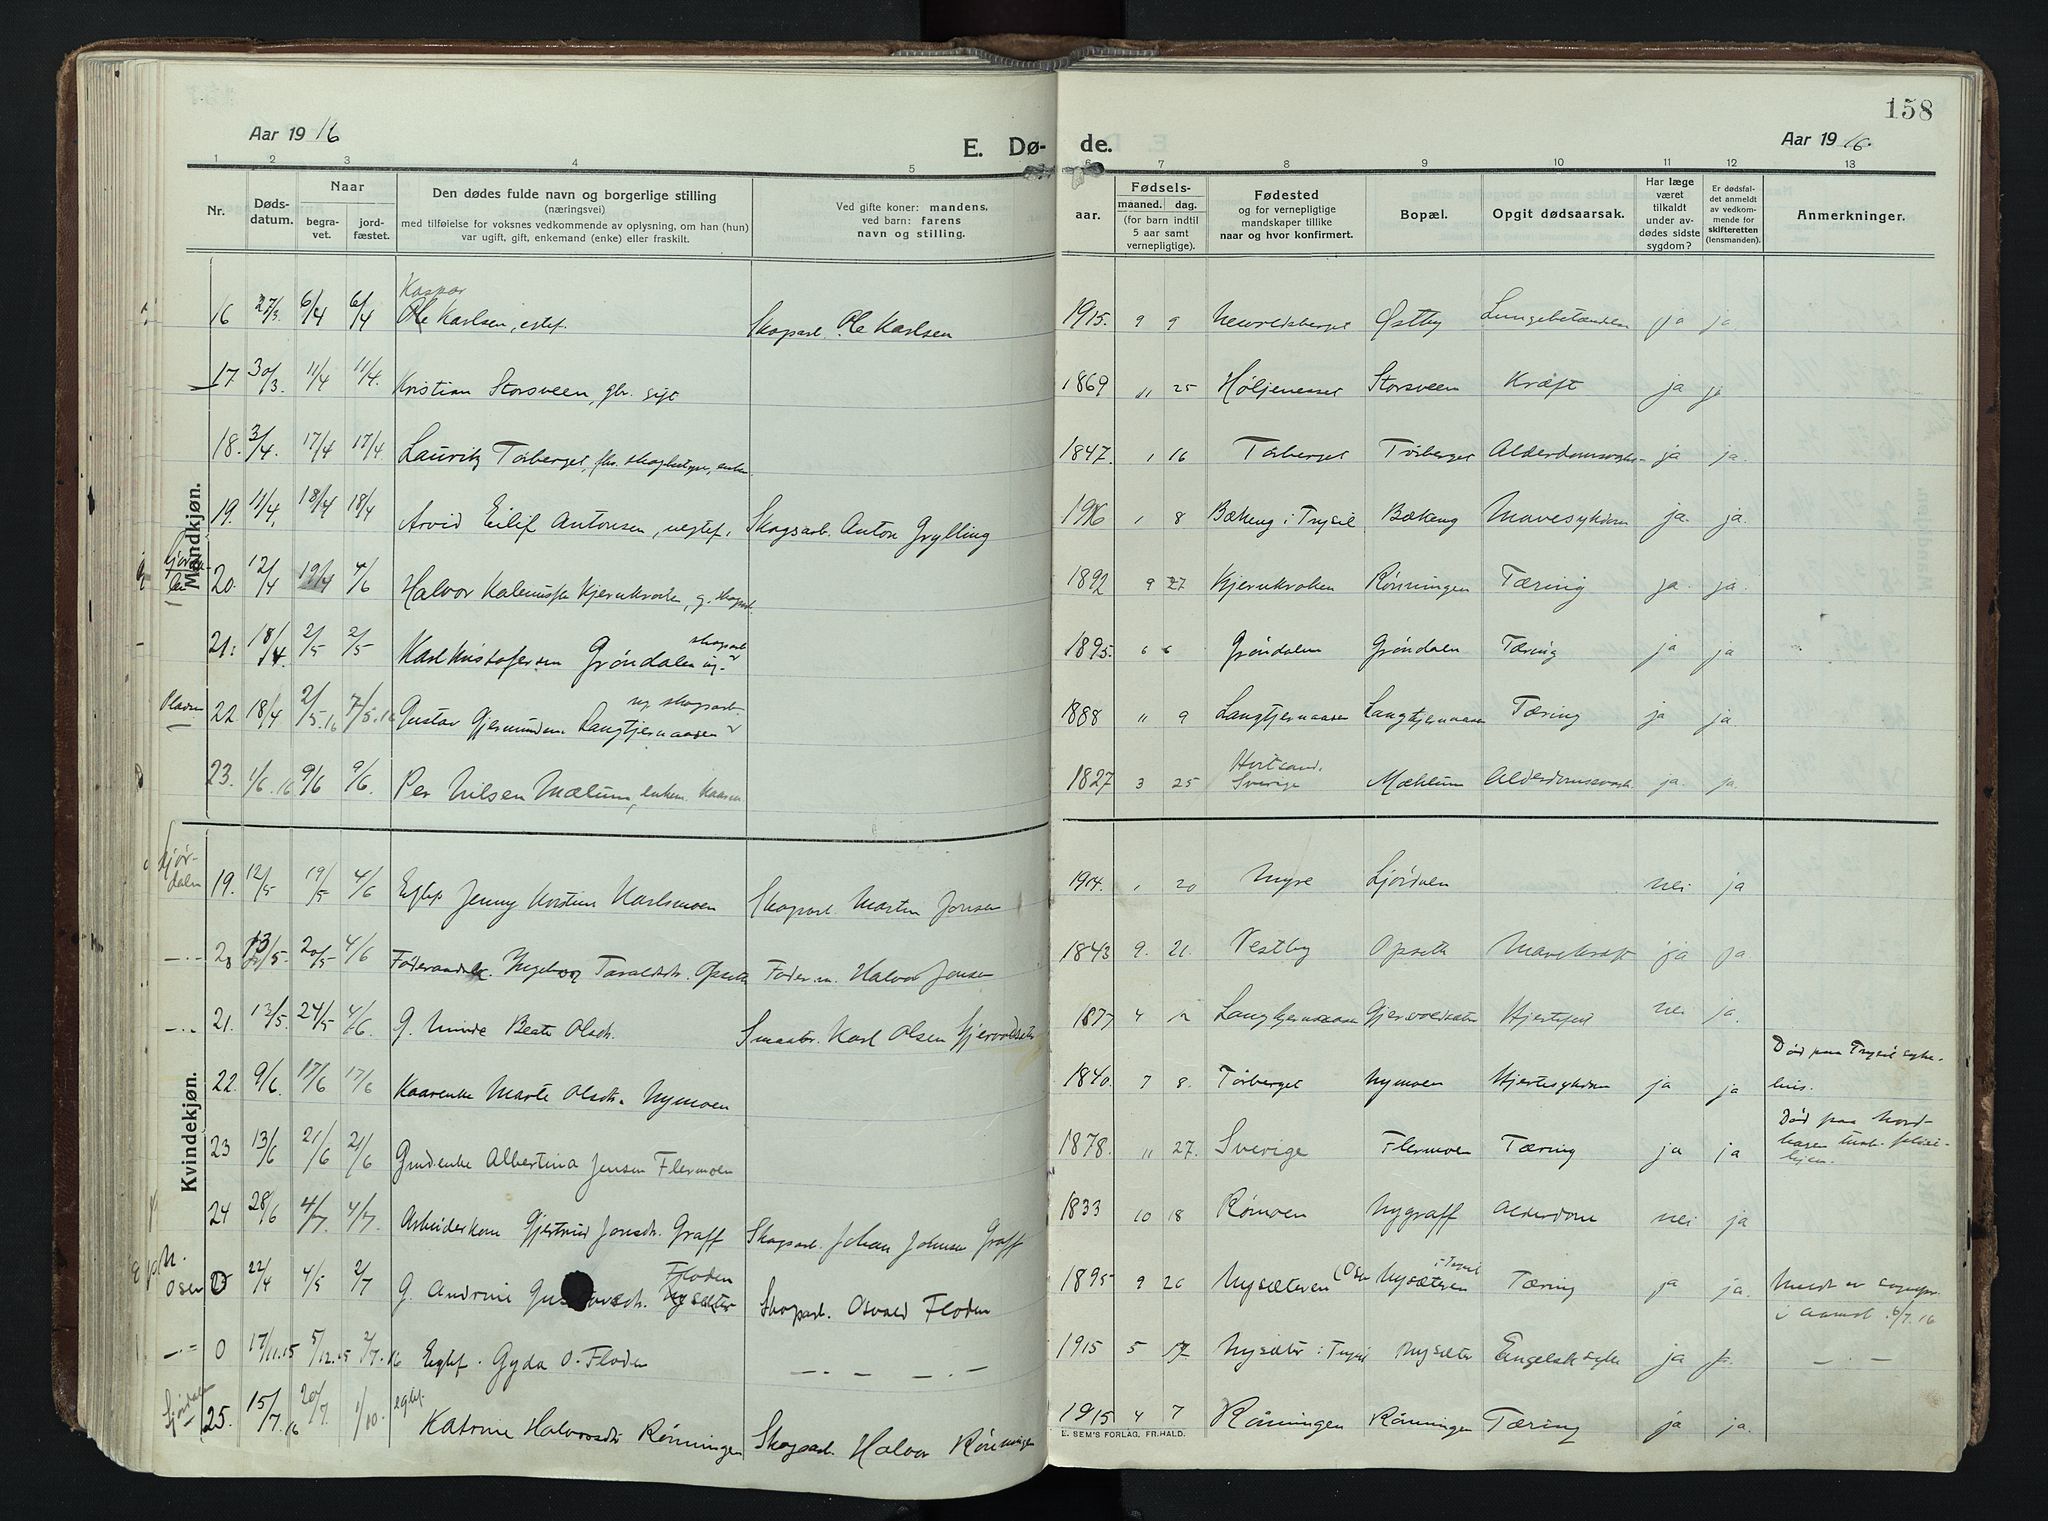 158
Aar 1916
E. Dø- de.
Aar 1916.
1 2 3 4 5 6 7 8 9 10 11 12 13
Nr.
Døds-
datum.
Naar
begra-
vet.
jord-
fæstet.
Den dødes fulde navn og borgerlige stilling
(næringsvei)
med tilføielse for voksnes vedkommende av oplysning, om han (hun)
var ugift, gift, enkemand (enke) eller fraskilt.
Ved gifte koner: mandens,
ved barn: farens
navn og stilling.
Fødsels-
aar.
maaned.
dag.
(for barn indtil
5 aar samt
vernepligtige).
Fødested
og for vernepligtige
mandskaper tillike
naar og hvor konfirmert.
Bopæl.
Opgit dødsaarsak.
Har læge
været
tilkaldt
under av-
dødes sidste
sygdom?
Er dødsfal-
det anmeldt
av vedkom-
mende for
skifteretten
(lensmanden).
Anmerkninger.
Mandkjøn.
Kaspar
16 27/3 6/4 6/4 Ole Karlsen, egtef. Skogsarb. Ole Karlsen 1915. 9 9 Østby Lungebetændelse ja ja
17 30/3 11/4 11/4. Kristian Storsveen, gbr. gift 1869 11 25 Høljenesset Storsveen Kræft ja ja
18. 3/4. 17/4 17/4. Lauritz Tørberget, enkem. 1847. 1 16 Tørberget Tørberget Alderdomssvakh. ja ja.
19. 11/4. 18/4 18/4 Arvid Eilif Antonsen, uegtef. Skogsarb. Anton Grylling 1916 1 8 Bækeng i Trysil Bækeng Mavesykdom ja. ja.
20. 12/4 19/4 4/6 Halvor Kjernkroken, g. skogsarb. 1892 9 27 Kjernkroken Rønningen Tæring ja. ja.
21. 18/4. 2/5 2/5 Karl Kristofersen Grøndalen ug. skogsarb. 1895. 6 6 Grøndalen Grøndalen Tæring ja ja
22 18/4 2/5.16 7/5.16 Gustav Gjermundsen Langtjernaasen ug. skogsarb. 1888 11 9 Langtjernaasen Langtjernaasen Tæring ja ja.
23. 1/6.16 9/6 9/6. Per Nilsen Mælum, enkem. 1827 3 25 Sverige Mæhlum Alderdomssvakh. ja. ja.
Kvindekjøn.
Ljør-
dalen
19. 12/5 19/5 4/6 Egtef. Jenny Kristine Karlsmoen Skogsarb. Martin Jonsen 1914. 1 20 Myre Ljørdalen nei ja
20 13/5. 20/5 4/6 Føderaadsk. Ingeborg Taraldsdr. Opseth Føder.m. Halvor Jensen 1843 9. 21. Vestby Opseth Mavekræft ja ja
21. 13/5. 24/5 4/6 G. Minda Beate Olsdr. Smaabr. Karl Olsen Gjervoldsæter 1877 4 12 Langtjernaasen Gjervoldsæter Hjertefeil nei ja.
22 9/6. 17/6 17/6 Kaarenke Marte Olsdr. Nymoen 1840. 7 8. Tørberget Nymoen Hjertesykdom ja ja Død paa Trysil syke-
hus.
23 13/6 21/6 21/6 Gaardenke Albertina Jensen Flermoen 1878. 11 27. Sverige Flermoen Tæring ja ja Død paa Nord-
hagen tub. pleie-
hjem.
24 28/6 4/7 4/7. Arbeiderkone Gjertrud Jonsdr. Graff Skogsarb. Johan Johnsen Graff 1833 10 18 Rømoen Nygraff Alderdom nei ja
N.
Osen
0 22/4 4/5 2/7 G. Andrine Gustavsdr. Floden Skogsarb. Osvald Floden 1895 9 26 Nysæteren (Osen Nysæteren i Trysil Tæring ja ja.
i Aamot 6/7.16
0 17/11.15 5/12.15 2/7.16 Egtef. Gyda O. Floden 1915 5 17 Nysæter i Trysil Nysæter Engelsk syke ja ja.
Ljørdalen
25. 15/7 16 20/7. 1/10. egtef. Katrine Halvorsdtr Rønningen Skogsarb. Halvor Rønningen 1915 4 7 Rønningen Rønningen Tæring ja ja.
E. SEM'S FORLAG, FR.HALD.